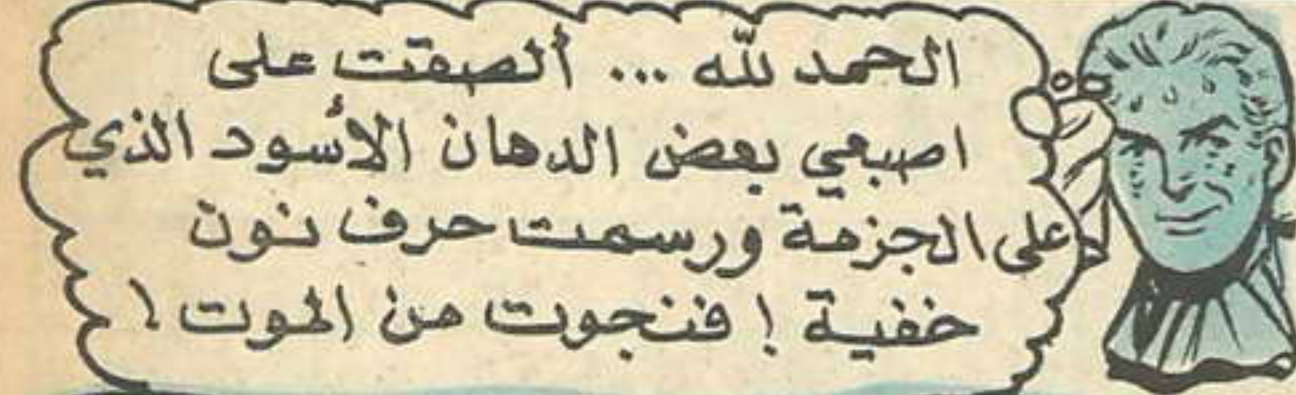 الحمد لله ... ألصقت على
اصبعي بعض الدهان الأسود الذي
على الجزمة ورسمت حرف نون
خفية ! فنجوت من الموت !